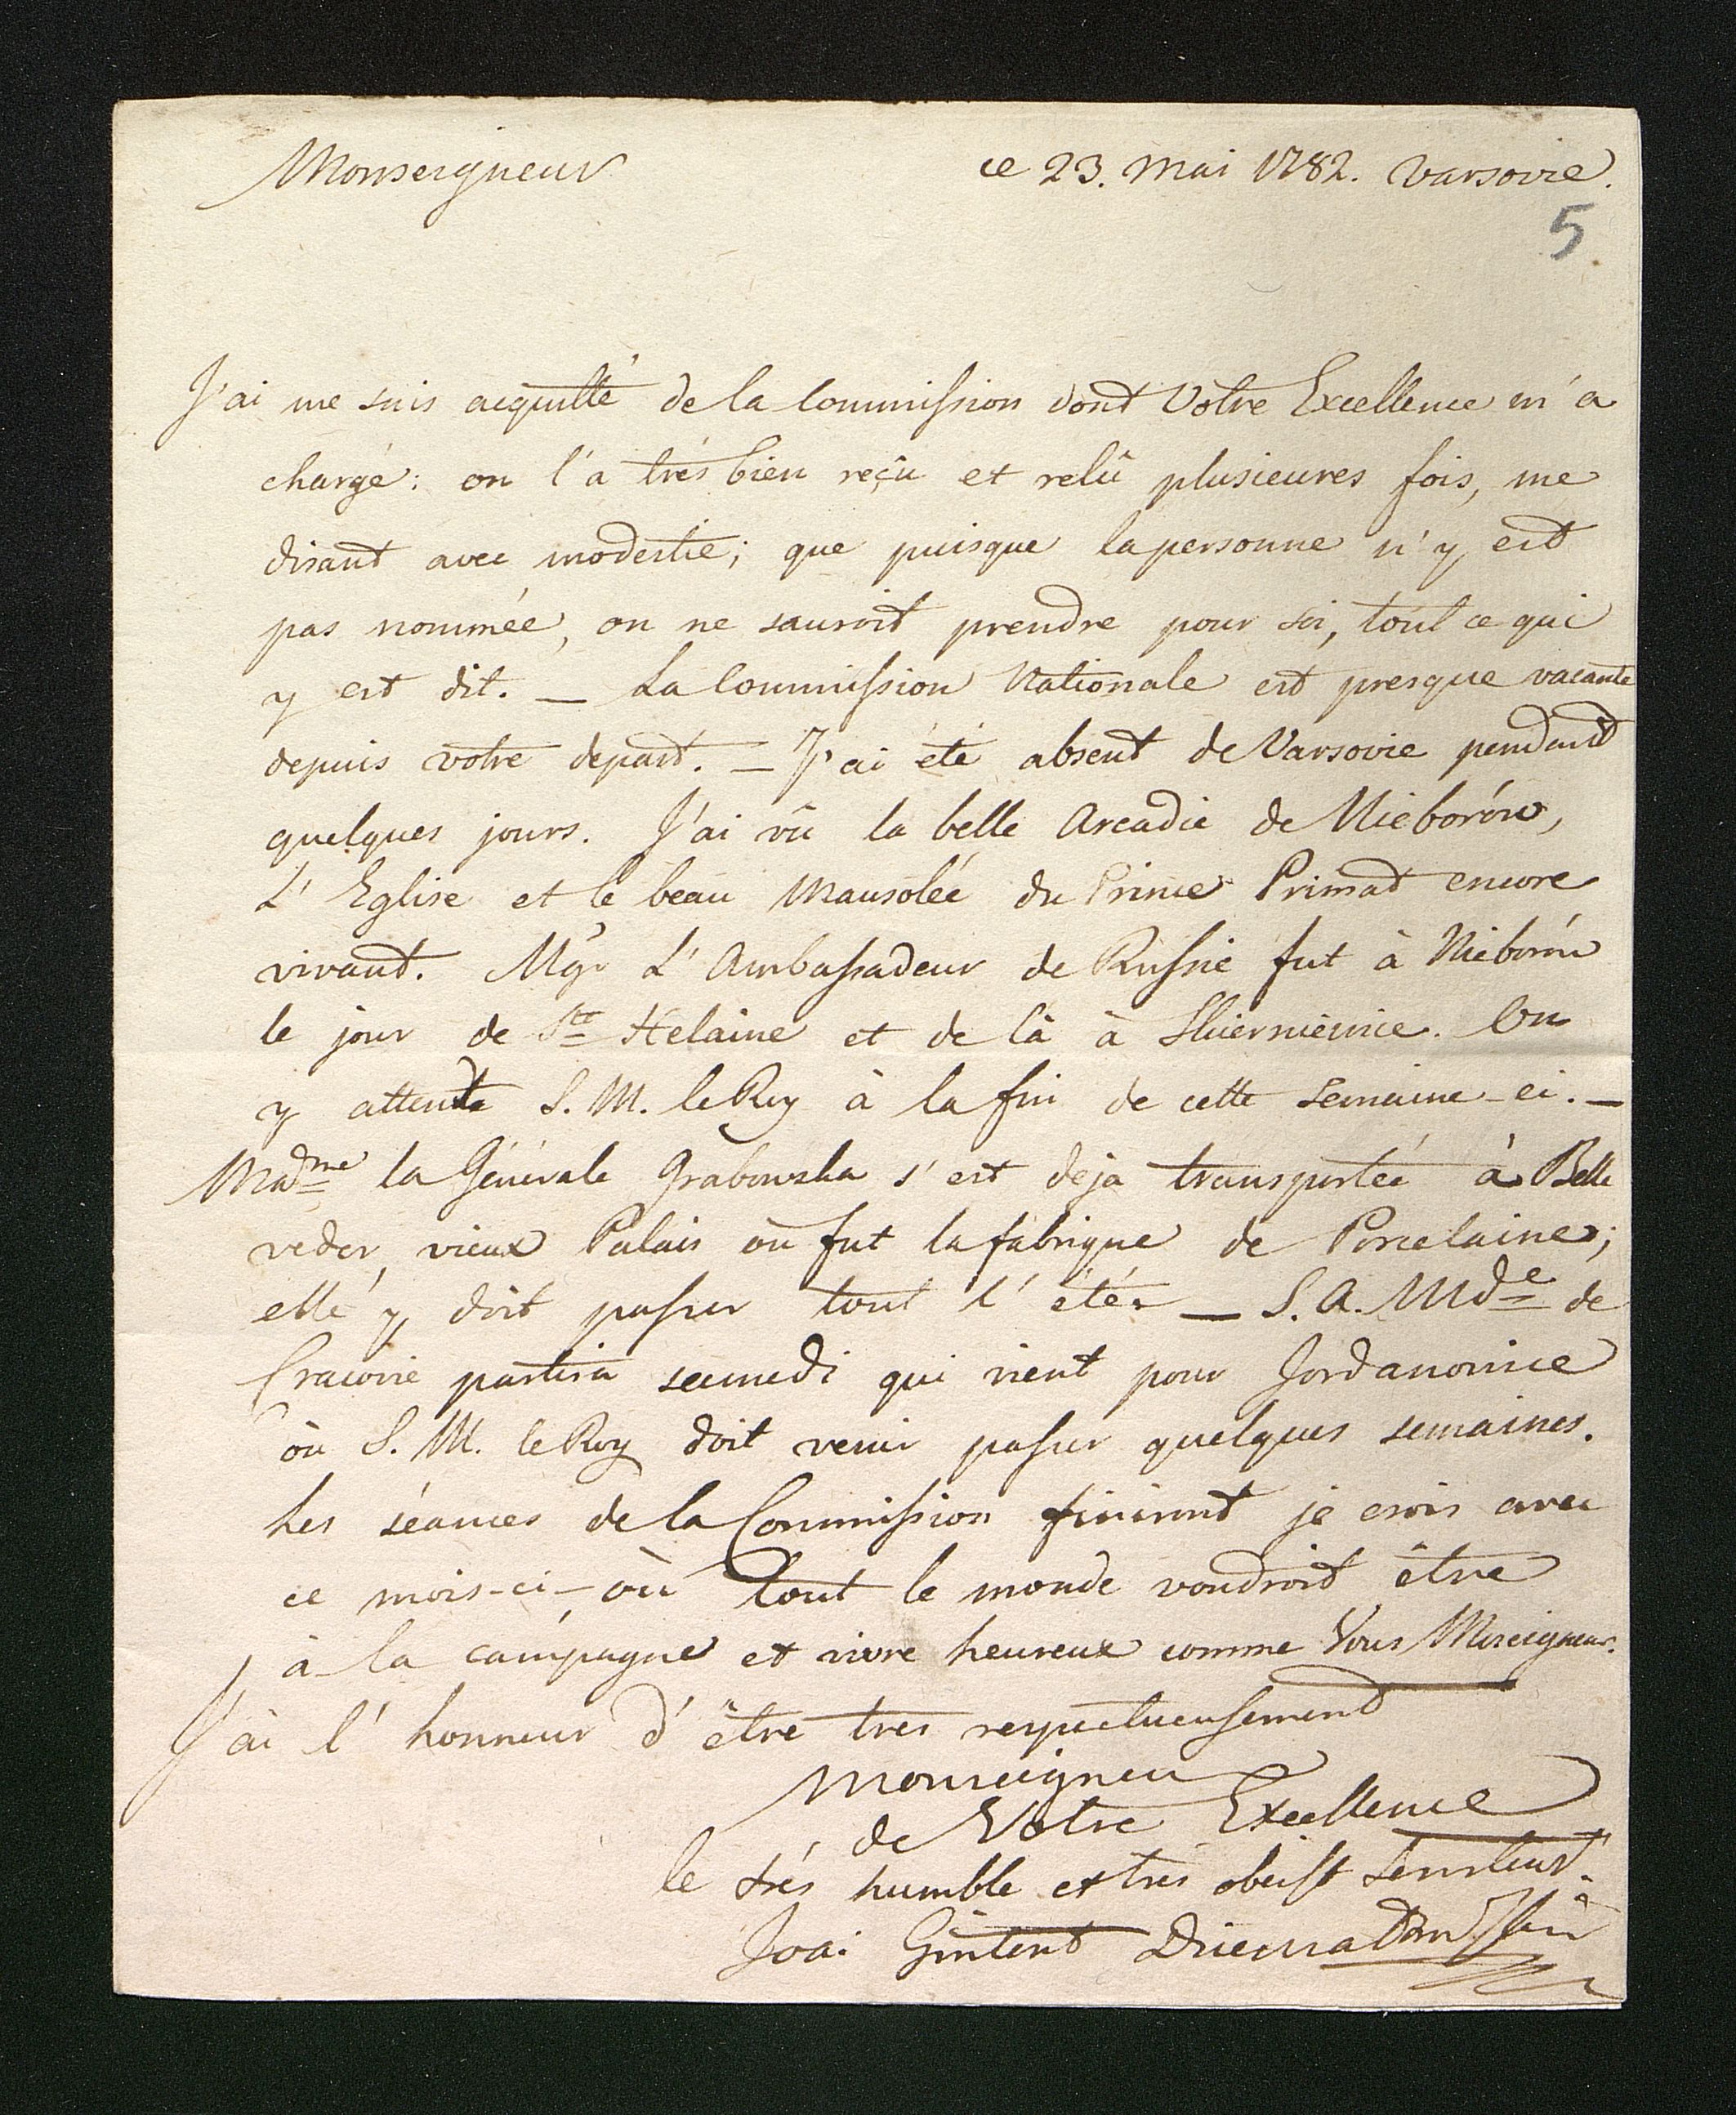 Monseigneur ce 23. Mai 1782. Varsovie.
5
J'ai me suis acquitté de la Commission dont Votre Excellence m'a
chargé: on l'a trés bien reçû et relû plusieures fois, me
disant avec modestie; que puisque la personne n'y est
pas nommée, on ne sauroit prendre pour soi, tout ce qui
y est dit. — La Commission Nationale est presque vacante
depuis votre depart. — J'ai été absent de Varsovie pendant
quelques jours. J'ai vû la belle Arcadie de Nieborów,
L'Eglise et le beau Mausolée du Prince Primat encore
vivant. Mgr L'Ambassadeur de Russie fut à Nieborów
le jour de Ste Helaine et de là à Skierniewice. On
y attend S. M. le Roy à la fin de cette semaine-ci. —
Madme la Génerale Grabowska s'est deja transportée à Belle
veder, vieux Palais où fut la fabrique de Porcelaine;
elle y doit passer tout l'été. — S. A. Mde de
Cracovie partira samedi qui vient pour Jordanowice
où S. M. le Roy doit venir passer quelques semaines.
Les séances de la Commission finiront je crois avec
ce mois-ci - où tout le monde voudroit être
à la campagne et vivre heureux comme Vous Mseigneur.
J'ai l'honneur d'être tres respectueusement
Monseigneur
de Votre Excellence
le trés humble et tres obeisst Serviteur.
Joa: Gintent